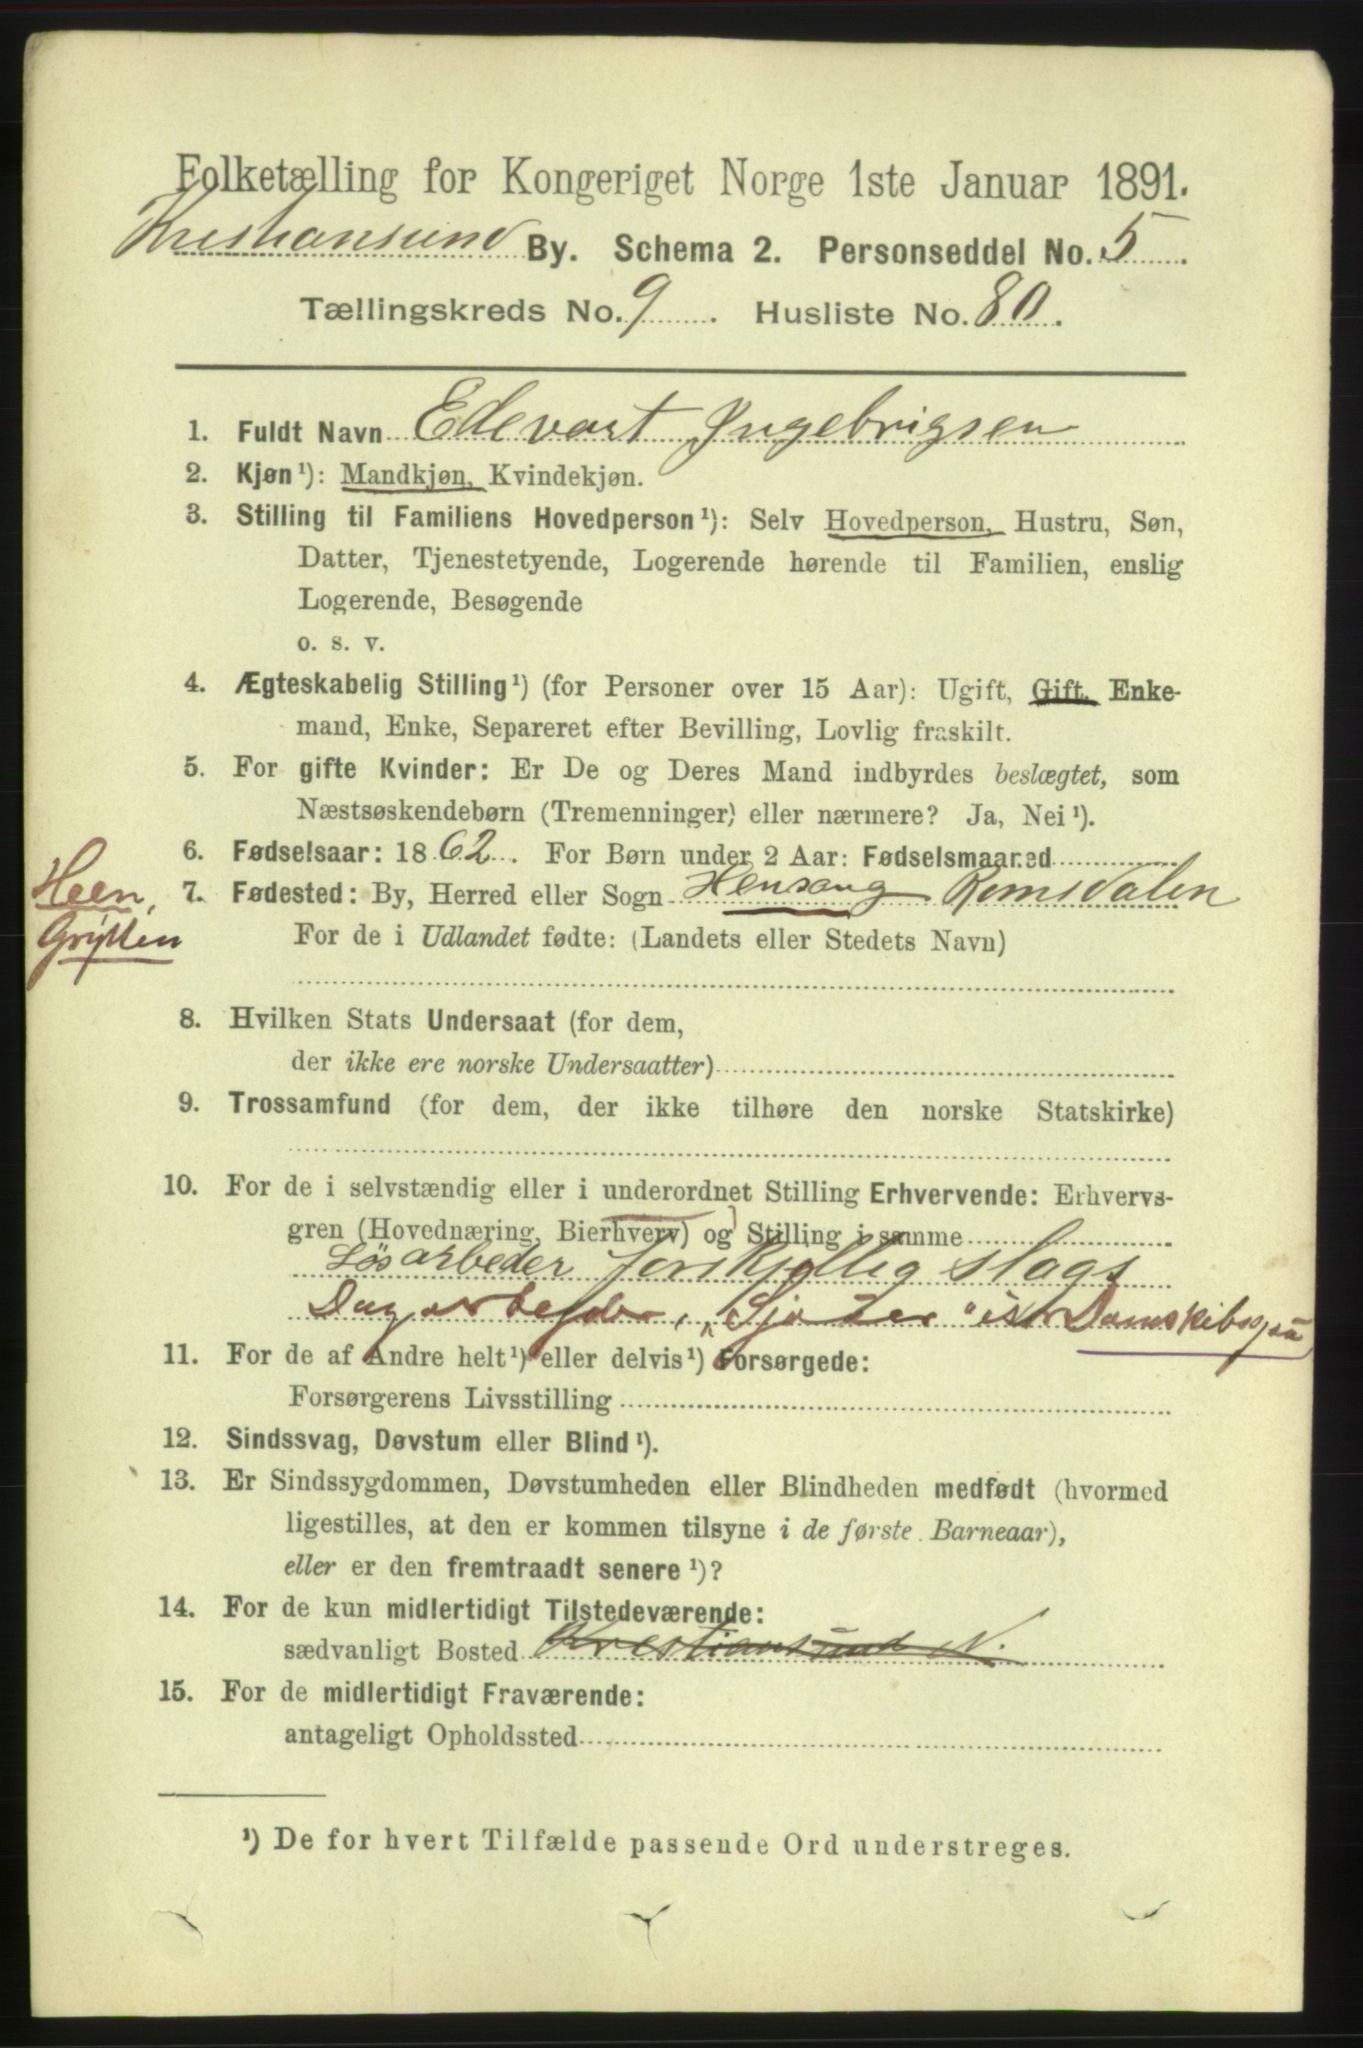 Folketælling for Kongeriget Norge 1ste Januar 1891.
Kristiansund By. Schema 2. Personseddel No. 5
Tællingskreds No. 9. Husliste No. 80.
1. Fuldt Navn Edevart Ingebrigsen
2. Kjøn¹): Mandkjøn, Kvindekjøn.
3. Stilling til Familiens Hovedperson¹): Selv Hovedperson, Hustru, Søn,
Datter, Tjenestetyende, Logerende hørende til Familien, enslig
Logerende, Besøgende
o. s. v.
4. Ægteskabelig Stilling¹) (for Personer over 15 Aar): Ugift, Gift, Enke-
mand, Enke, Separeret efter Bevilling, Lovlig fraskilt.
5. For gifte Kvinder: Er De og Deres Mand indbyrdes beslægtet, som
Næstsøskendebørn (Tremenninger) eller nærmere? Ja, Nei¹).
6. Fødselsaar: 1862. For Børn under 2 Aar: Fødselsmaaned
Heen,
Grytten
7. Fødested: By, Herred eller Sogn Hensong Romsdalen
For de i Udlandet fødte: (Landets eller Stedets Navn)
8. Hvilken Stats Undersaat (for dem,
der ikke ere norske Undersaatter)
9. Trossamfund (for dem, der ikke tilhøre den norske Statskirke)
10. For de i selvstændig eller i underordnet Stilling Erhvervende: Erhvervs-
gren (Hovednæring, Bierhverv) og Stilling i samme
Løsarbeder forskjøllig slags
Dagarbejder, "Sjouer"
11. For de af Andre helt¹) eller delvis¹) Forsørgede:
Forsørgerens Livsstilling
12. Sindssvag, Døvstum eller Blind¹).
13. Er Sindssygdommen, Døvstumheden eller Blindheden medfødt (hvormed
ligestilles, at den er kommen tilsyne i de første Barneaar),
eller er den fremtraadt senere¹)?
14. For de kun midlertidigt Tilstedeværende:
sædvanligt Bosted Krestiansund N.
15. For de midlertidigt Fraværende:
antageligt Opholdssted
¹) De for hvert Tilfælde passende Ord understreges.